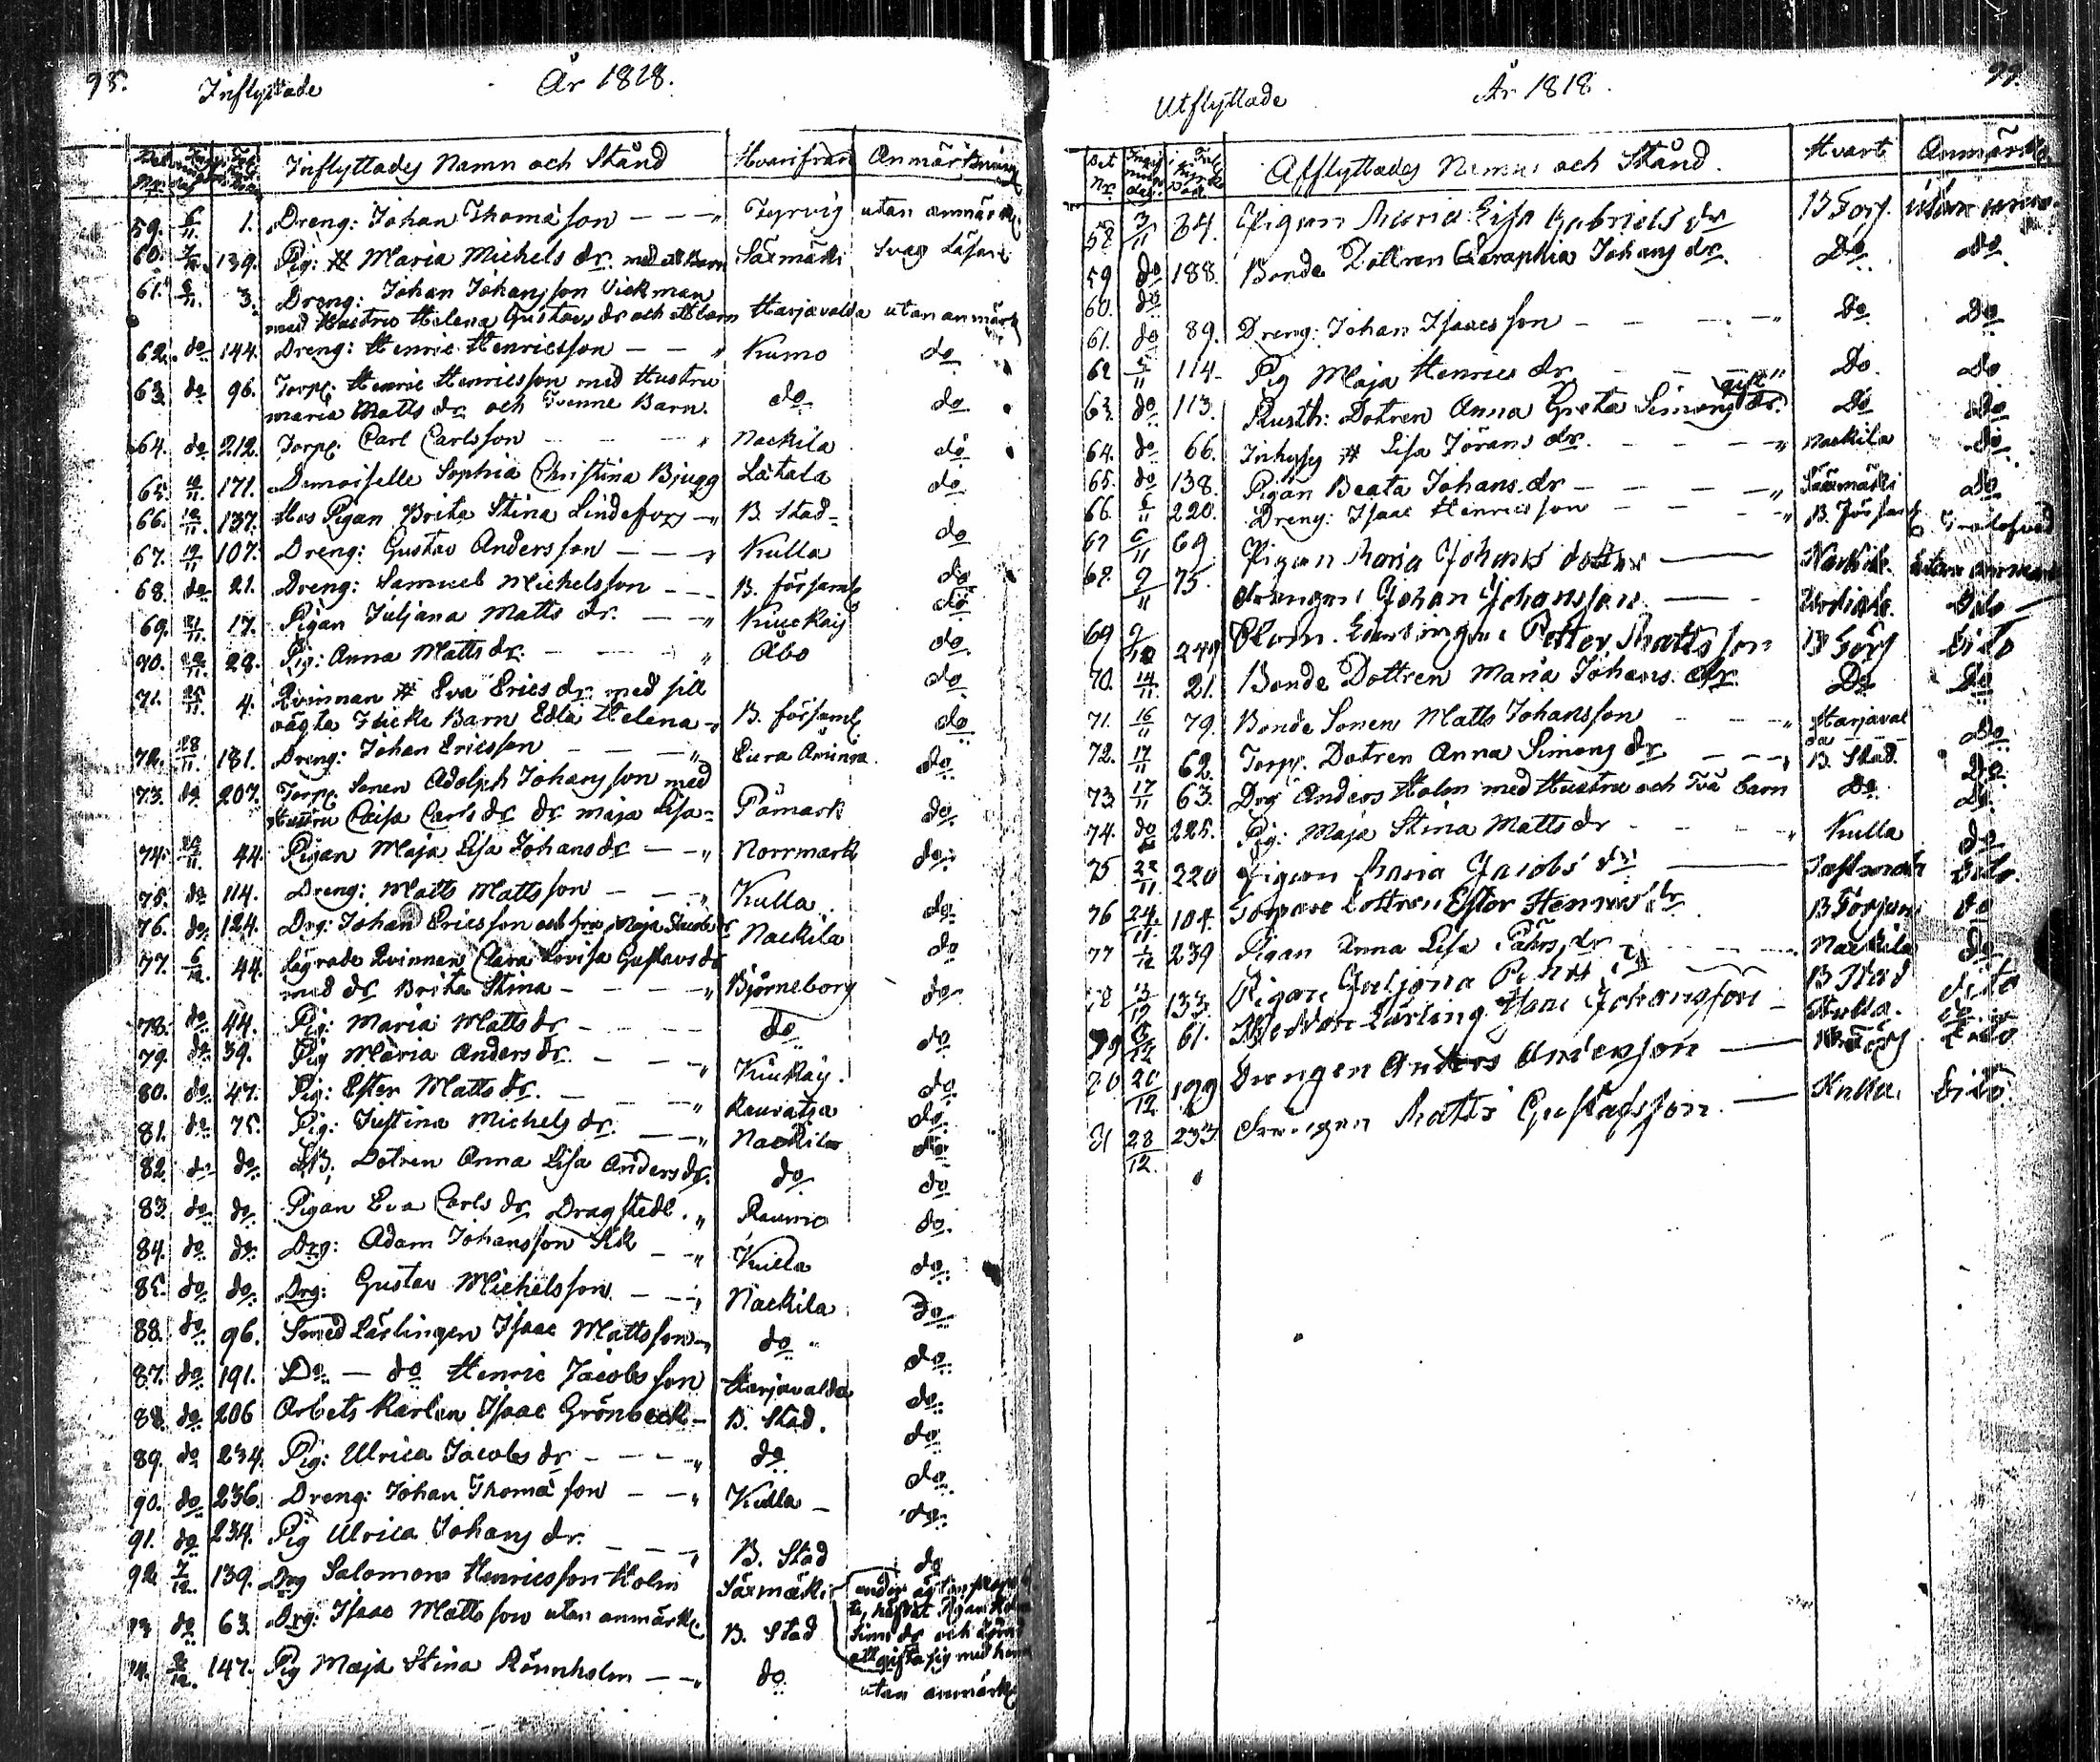 98. Inflyttade År 1818.
Inflyttades Namn och Stånd Hvarifrån Anmärkning
59. 6/11. 1. Dreng: Johan Thomasson — — „ Tyrvis utan anmärk
60. 7/11. 139. Pig: # Maria Michels dr. med ett Barn Säxmäki Svag Läsare
61. 3. Dreng: Johan Johansson Vickman
med Hustru Helena Gustavs dr och ett barn Harjavalda utan anmärk
62. do 144. Dreng: Henric Henricsson — — „ Kumo do
63. do 96. Torp: Henric Henricsson med Hustru
maria Matts dr och Tvenne Barn. do do
64. do 212. Torp: Carl Carlsson — — — „ Nackila do
65. 171. Demoiselle Sophia Christina Bjugg Lätala do
66. 137. Hos Pigan Brita Stina Lindefors — „ B. Stad do
67. 107. Dreng: Gustav Andersson — — „ Kulla do
68. do 21. Dreng: Samuel Michelsson — — B. församl do
69. 17. Pigan Juljana Matts dr. — — „ do
70. 28. Pig: Anna Matts dr. — — — „ Åbo do
71. 25/11. 4. Qvinnan # Eva Erics dr. med sitt
oägta Flicke Barn Edla Helena „ B. församl do
72. 28/11. 181. Dreng: Johan Ericsson — — — „ Eura Åminne do
73. do 207. Torp: Sonen Adolph Johansson med
Hustru Caisa Carls dr dr. maja Lisa Påmark do
74. 44. Pigan Maja Lisa Johans dr — — „ Norrmark do
75. do 114. Dreng: Matts Mattsson — — „ Kulla do
76. do 124. Drg: Johan Ericsson och hru Maja Jacobs dr Nackila do
77. 6/12. 44. Lägrade Qvinnan Clara Lovisa Gustavs dr
med dr Brita Stina — — — „ Björneborg do
78. do 44. Pig: Maria Matts dr — — — do do
79. do 39. Pig Maria Anders dr. — — „ do
80. do 47. Pig: Ester Matts dr. — — — „ do
81. do 75. Pig: Justina Michels dr. — — „ Nackila do
82. do do Dotren Anna Lisa Anders dr. do do
83. do do Pigan Eva Carls dr Dragstedt. „ Raumo do
84. do do Drg: Adam Johansson — — „ Kulla do
85. do do Drg: Gustav Michelsson — — „ Nackila do
88. do 96. Smed Lärlingen Isaac Mattsson — „ do do
87. do 191. Do — do Henric Jacobsson Harjavalda do
88. do 206 Arbets Karlen Isaac Grönbeck — B. Stad. do
89. do 234. Pig: Ulrica Jacobs dr — — — „ do do
90. do 236. Dreng: Johan Thomasson — — „ Kulla — do
91. do 234. Pig Ulrica Johans dr. — — — „ B. Stad do
92. 7/12. 139. Drg Salomon Henricsson Holm Säxmäki
do 63. Drg: Isaac Mattsson utan anmärk: B. Stad
Sims dr och ärnar
att gifta sig med henne
147. Pig Maja Stina Rönnholm — — „ do utan anmärk
99. Utflyttade År 1818.
Afflyttades Namn och Stånd. Hvart Anmärkn
58 3/11 34. Pigan Maria Lisa Gabriels dr B Förs. utan anm
59 do 188. Bonde Dottren Seraphia Johans dr. Do do
60. do
61. do 89. Dreng: Johan Isaacsson — — — „ Do Do
62 5/11 114. Pig Maja Henrics dr — — — „ Do do
63. do 113. Rusth: Dotren Anna Greta Simons dr. gift Do do
64. do 66. Inhyses # Lisa Jörans dr. — — — „ Nackila do
65. do 138. Pigan Beata Johans dr — — — „ Säxmäki do
66. 6/11 220. Dreng: Isaac Henricsson — — — „ B. Församl
67 6/11 69 Pigan Maria Johans dotter — Nackila utan anmärk
68. 9/11 75. Drengen Johan Johansson — dito
69 249 Petter Mattsson B Förs dito
70. 14/11 21. Bonde Dottren Maria Johans dr. Do Do
71. 16/11 79. Bonde Sonen Matts Johansson — — „ Harjaval
da Do
72. 17/11 62. Torp: Dotren Anna Simons dr — — „ B. Stad Do
73. 17/11 63. Drg Anders Holm med Hustru och Två barn Do Do
74. do 225. Pig: Maja Stina Matts dr — — „ Kulla do
75 22/11 220 Pigan Maria Jacobs dr — dito.
76 24/11 104. Torpare Dottren Ester Henrics dr B Försam do
77 1/12 239 Pigan Anna Lisa dr — — Nackila do
78 13/12 133. Pigan Juljana B Stad dito
79 61. Lärling Johansson — Kulla. do
80 20/12 199 Drengen Anders Andersson — dito
81 28/12. 233. Drengen Matts Gustafsson. — Kulla. dito